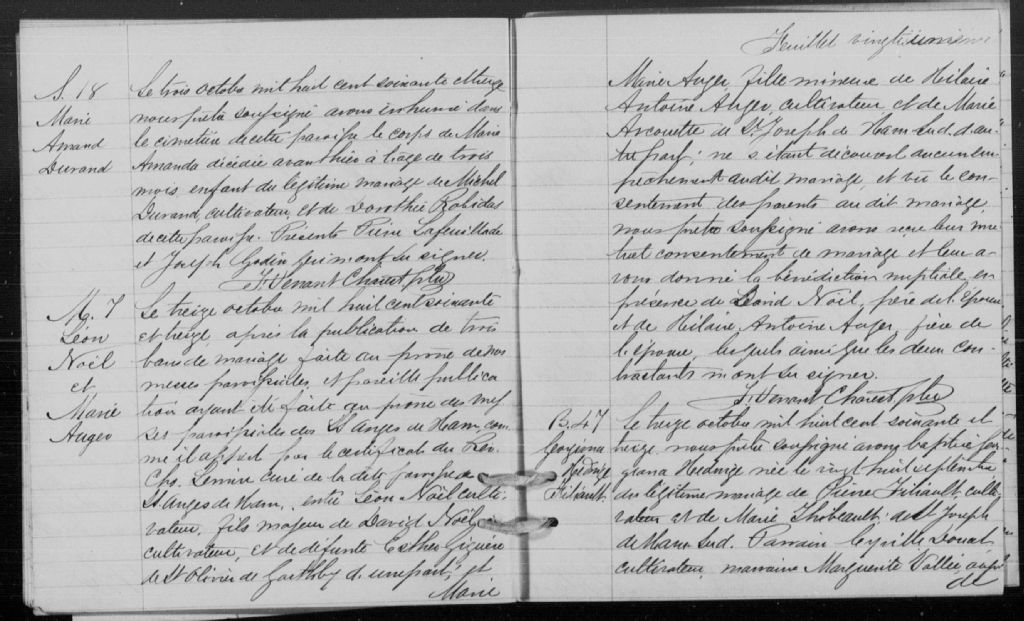 S. 18
Marie
Amand
Durand
Le trois octobre mil huit cent soixante et treize
nous prêtre soussigné avons inhumé dans
le cimetière de cette paroisse le corps de Marie
Amanda décédée avant hier à l'age de trois
mois enfant du légitime mariage de Michel
Durand, cultivateur, et de Dorothée Robidas
de cette paroisse. Présents Pierre Lafeuillade
et Joseph Godin qui n'ont su signer.
F. Venant Charest ptre
M. 7
Léon
Noël
et
Marie
Auger
Le treize octobre mil huit cent soixante
et treize, après la publication de trois
bans de mariage faite au prône de nos
messes paroissiales, et pareille publica
tion ayant été faite au prône des mes
ses paroissiales des Sts Anges de Ham, com
me il appert par le certificat du Rev.
Chs. Lemire curé de la dite paroisse de
Sts Anges de Ham, entre Léon Noël culti-
vateur, fils majeur de David Noël
cultivateur, et de défunte Esther Giguère
de St Olivier de Garthby d'une part; et
Marie
Feuillet vingtième
Marie Auger fille mineure de Hilaire
Antoine Auger, cultivateur et de Marie
Arcouette de St Joseph de Ham-Sud, d'au-
tre part; ne s'étant découvert aucun em-
pêchement au dit mariage, et vu le con-
sentement des parents au dit mariage,
nous prêtre soussigné avons reçu leur mu
tuel consentement de mariage et leur a-
vons donné la bénédiction nuptiale en
présence de David Noël, père de l'époux
et de Hilaire Antoine Auger, père de
l'épouse, lesquels ainsi que les deux con-
tractants n'ont su signer.
F. Venant Charest ptre
B. 47
Georgiana
Hedwige
Filiault
Le treize octobre mil huit cent soixante et
treize, nous prêtre soussigné avons baptisé Geor
giana Hedwige née le vingt huit septembre
du légitime mariage de Pierre Filiault, culti-
vateur et de Marie Thibeault; de St Joseph
de Ham-Sud. Parrain Cyrille Doual
cultivateur, marraine Marguerite Vallée,
de